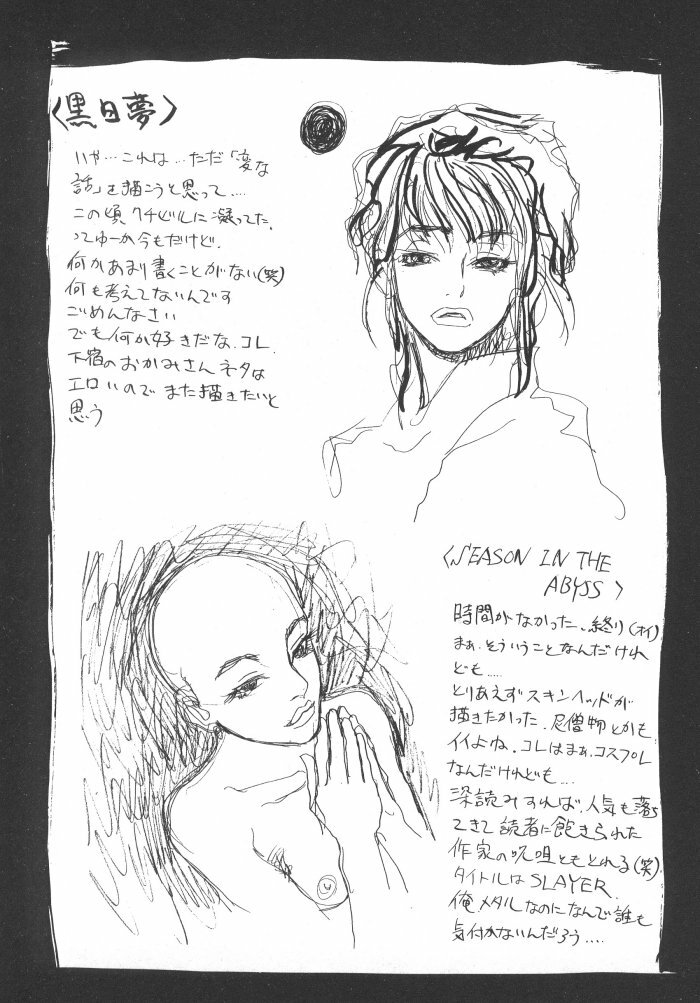 〈黒日夢〉
いや…これは…ただ「変な
話」を描こうと思って….
この頃クチビルに凝ってた.
ってゆーか今もだけど.
何かあまり書くことがない(笑)
何も考えてないんです
ごめんなさい
でも何か好きだな、コレ.
下宿のおかみさんネタは
エロいのでまた描きたいと
思う
〈SEASON IN THE
ABYSS〉
時間がなかった.終り(オイ)
まぁ.そういうことなんだけれ
ども…..
とりあえずスキンヘッドが
描きたかった.尼僧物とかも
イイよね.コレはまぁ.コスプレ
なんだけれども…
深読みすれば.人気も落ち
てきて読者に飽きられた
作家の呪咀ともとれる(笑)
タイトルはSLAYER.
俺メタルなのになんで誰も
気付かないんだろう….